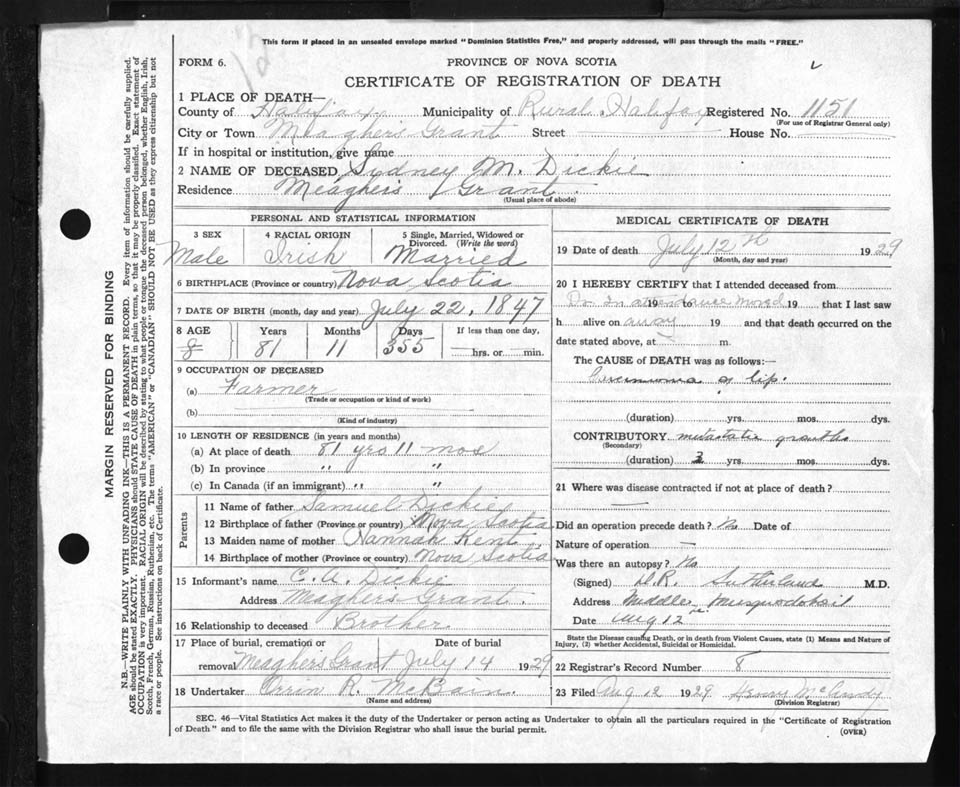 This form if placed in an unsealed envelope marked "Dominion Statistics Free," and properly addressed, will pass through the mails "FREE."
FORM 6.
PROVINCE OF NOVA SCOTIA
CERTIFICATE OF REGISTRATION OF DEATH
1 PLACE OF DEATH—
County of Halifax Municipality of Rural Halifax Registered No. 1151
(For use of Registrar General only)
City or Town Meaghers Grant Street House No.
If in hospital or institution, give name
2 NAME OF DECEASED Sydney M. Dickie
Residence Meaghers Grant
(Usual place of abode)
PERSONAL AND STATISTICAL INFORMATION
3 SEX 4 RACIAL ORIGIN 5 Single, Married, Widowed or Divorced. (Write the word)
Male Irish Married
6 BIRTHPLACE (Province or country) Nova Scotia
7 DATE OF BIRTH (month, day and year) July 22, 1847
8 AGE Years Months Days If less than one day,
8 81 11 355 hrs. or min.
9 OCCUPATION OF DECEASED
(a) Farmer
(Trade or occupation or kind of work)
(b)
(Kind of industry)
10 LENGTH OF RESIDENCE (in years and months)
(a) At place of death 81 yrs 11 mos
(b) In province " "
(c) In Canada (if an immigrant) " "
Parents
11 Name of father Samuel Dickie
12 Birthplace of father (Province or country) Nova Scotia
13 Maiden name of mother Hannah Kent
14 Birthplace of mother (Province or country) Nova Scotia
15 Informant's name C. A. Dickie
Address Meaghers Grant.
16 Relationship to deceased Brother
17 Place of burial, cremation or Date of burial
removal Meaghers Grant July 14 1929
18 Undertaker Orrin R. McBain.
(Name and address)
MEDICAL CERTIFICATE OF DEATH
19 Date of death July 12th 1929
(Month, day and year)
20 I HEREBY CERTIFY that I attended deceased from
Dr. in attendance moved 19 19 that I last saw
h alive on away 19 and that death occurred on the
date stated above, at m.
The CAUSE of DEATH was as follows:—
Carcinoma of lip.
(duration) yrs. mos. dys.
CONTRIBUTORY metastatic growths
(Secondary)
(duration) 3 yrs. mos. dys.
21 Where was disease contracted if not at place of death?
—
Did an operation precede death? No Date of
Nature of operation —
Was there an autopsy? No
(Signed) D.R. Sutherland M.D.
Address Middle Musquodoboit
Date Aug 12
State the Disease causing Death, or in death from Violent Causes, state (1) Means and Nature of
Injury, (2) whether Accidental, Suicidal or Homicidal.
22 Registrar's Record Number 8
23 Filed Aug 12 1929 Henry McCurdy
(Division Registrar)
SEC. 46—Vital Statistics Act makes it the duty of the Undertaker or person acting as Undertaker to obtain all the particulars required in the "Certificate of Registration
of Death" and to file the same with the Division Registrar who shall issue the burial permit.
(OVER)
MARGIN RESERVED FOR BINDING
N.B.—WRITE PLAINLY WITH UNFADING INK—THIS IS A PERMANENT RECORD. Every item of information should be carefully supplied.
AGE should be stated EXACTLY. PHYSICIANS should STATE CAUSE OF DEATH in plain terms, so that it may be properly classified. Exact statement of
OCCUPATION is very important. RACIAL ORIGIN will be described by stating to what people or tongue the deceased person belonged, whether English, Irish,
Scotch, French, German, Russian, Ruthenian, etc. The terms "AMERICAN" or "CANADIAN" SHOULD NOT BE USED as they express citizenship but not
a race or people. See instructions on back of Certificate.